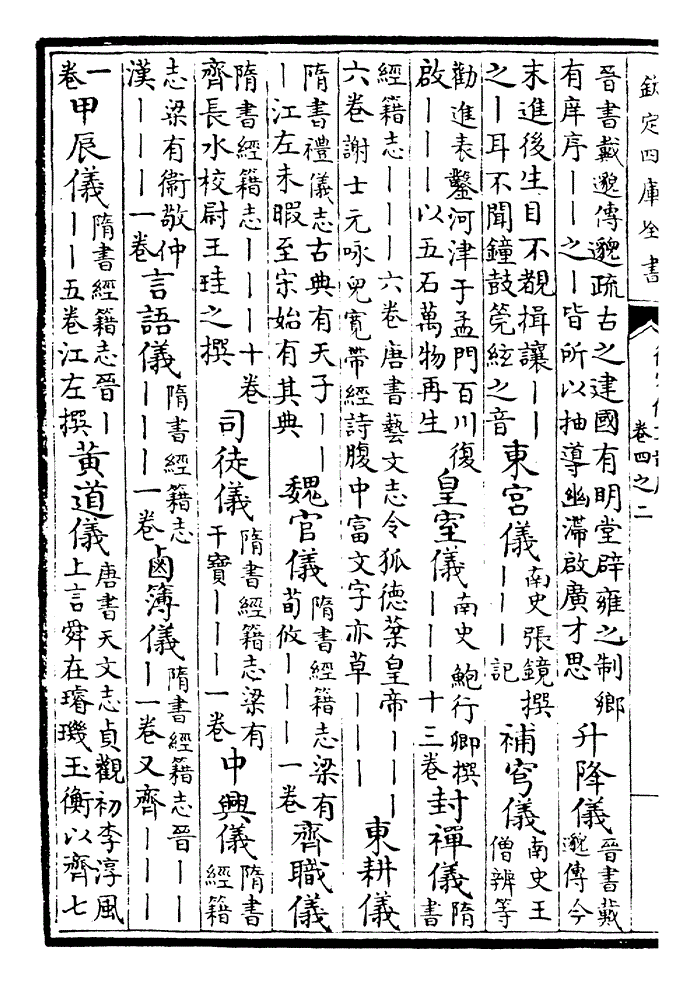 欽定四庫全書
卷四之二
晉書戴邈傳邈疏古之建國有明堂辟雍之制鄉
有庠序丨丨之丨皆所以抽導幽滯啟廣才思
升降儀
晉書戴
邈傳今
末進後生目不覩揖讓丨丨
之丨耳不聞鐘鼓筦絃之音
東宮儀
南史張鏡撰
丨丨丨記
補穹儀
南史王
僧辨等
勸進表鑿河津于孟門百川復
啟丨丨丨以五石萬物再生
皇室儀
南史鮑行卿撰
丨丨丨十三卷
封禪儀
隋
書
經籍志丨丨丨六卷唐書藝文志令狐德棻皇帝丨丨丨
六卷謝士元咏兒寬帶經詩腹中富文字亦草丨丨丨
東耕儀
隋書禮儀志古典有天子丨丨
丨江左未暇至宋始有其典
魏官儀
隋書經籍志梁有
荀攸丨丨丨一卷
齊職儀
隋書經籍志丨丨丨十卷
齊長水校尉王珪之撰
司徒儀
隋書經籍志梁有
干寶丨丨丨一卷
中興儀
隋書
經籍
志梁有衛敬仲
漢丨丨丨一卷
言語儀
隋書經籍志
丨丨丨一卷
鹵簿儀
隋書經籍志晉丨丨
丨一卷又齊丨丨丨
一
卷
甲辰儀
隋書經籍志晉丨
丨丨五卷江左撰
黃道儀
唐書天文志貞觀初李淳風
上言舜在璿璣玉衡以齊七